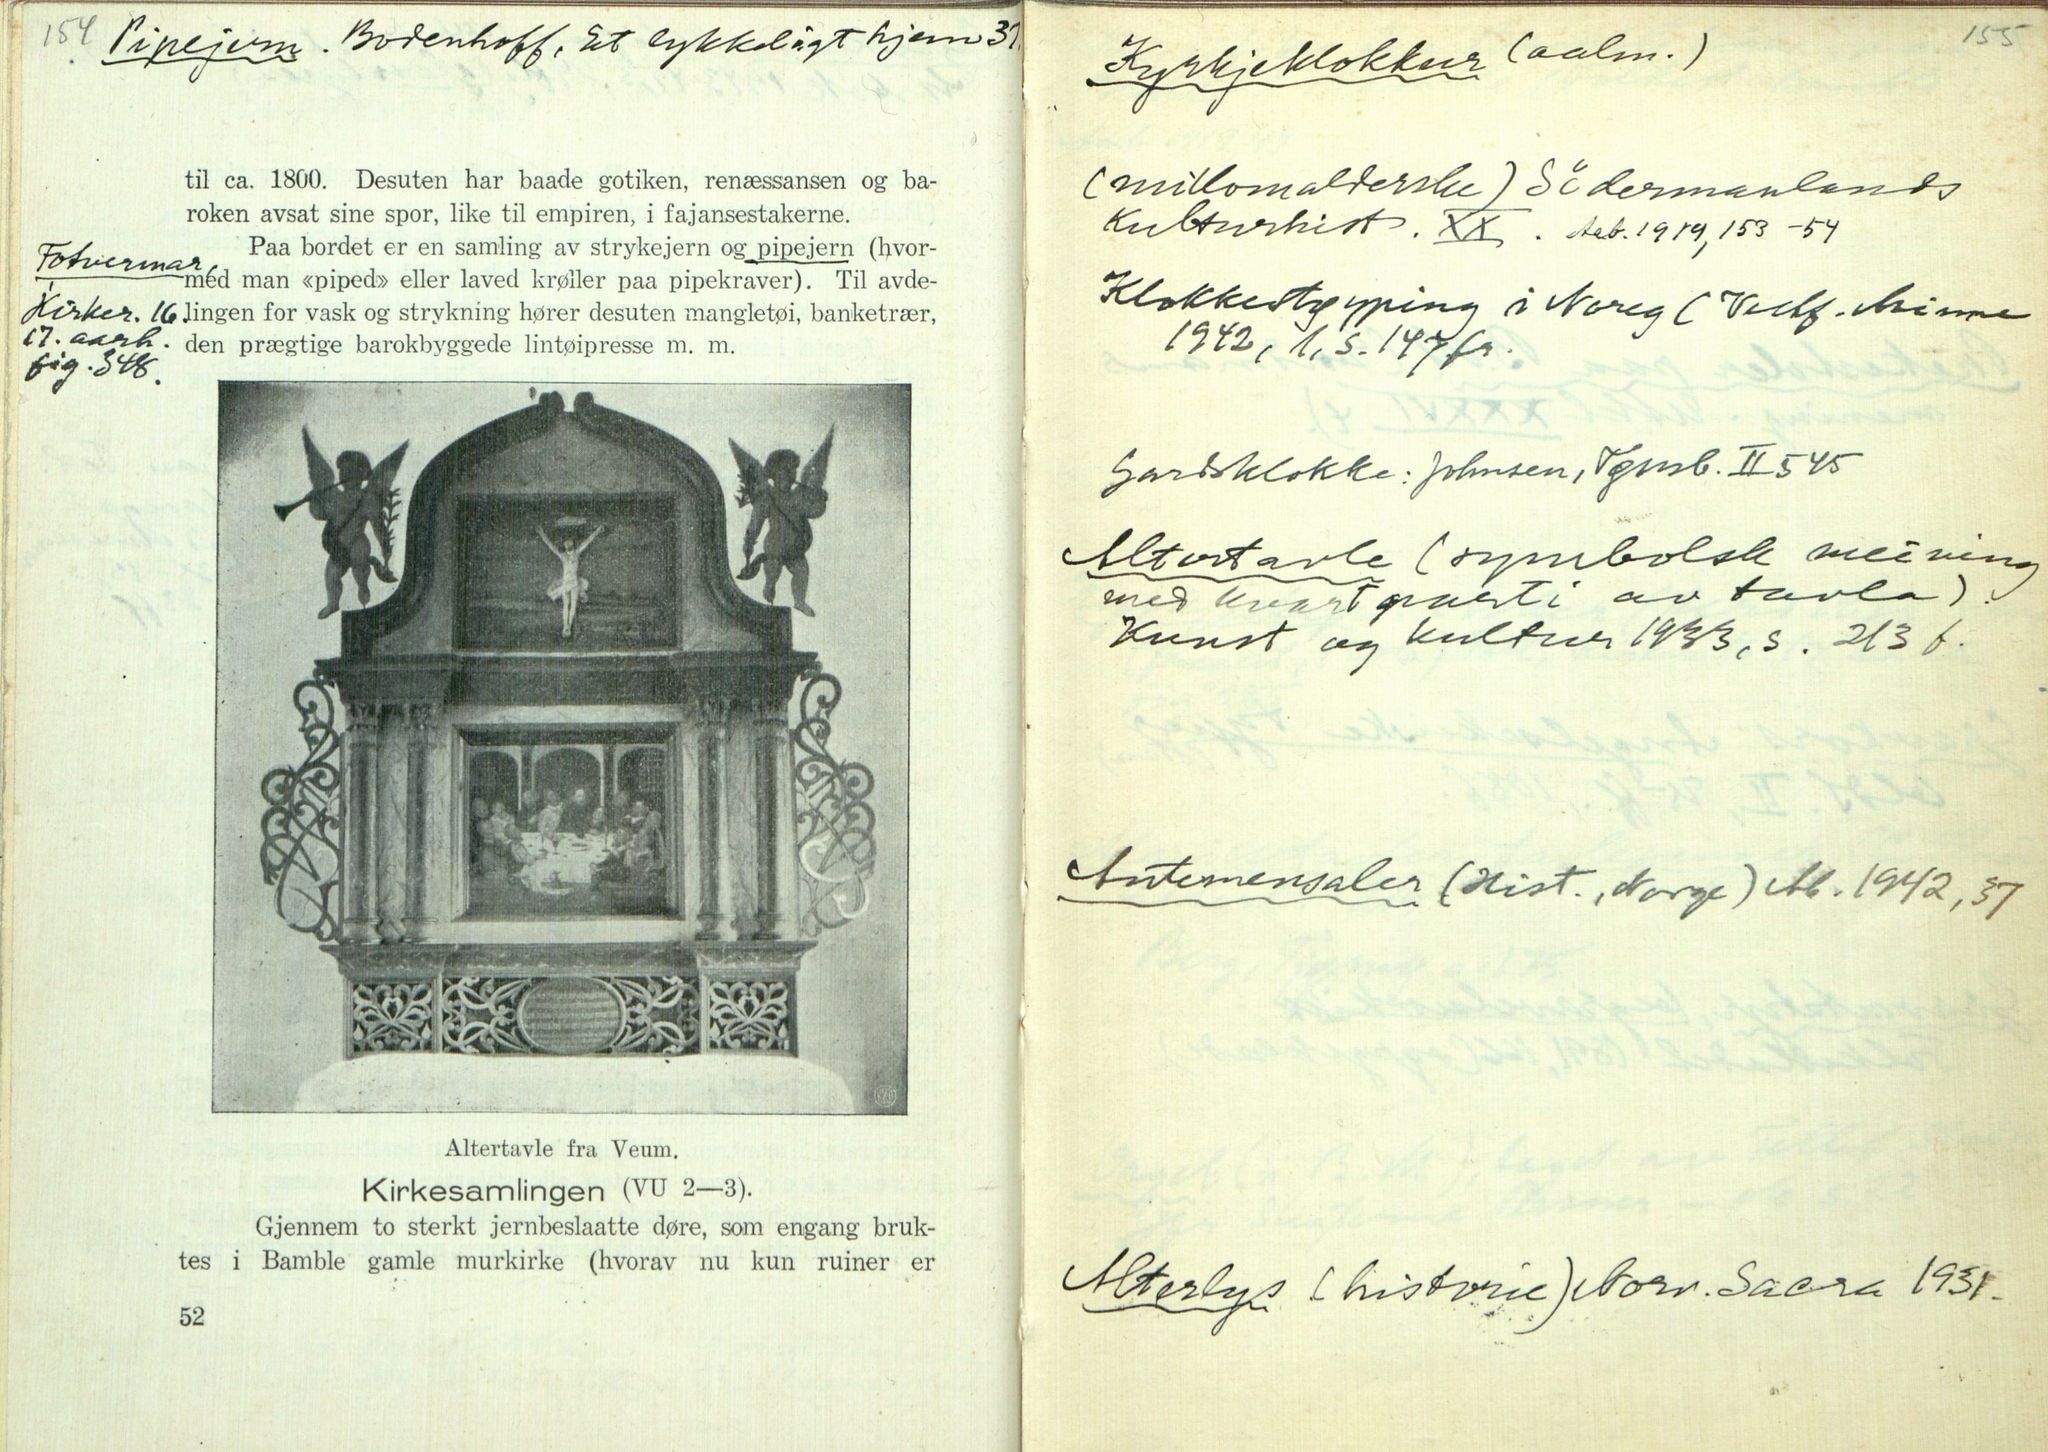 154
Pipejern. Bodenhoff, Et lykkeligt hjem 37.
til ca. 1800. Desuten har baade gotiken, renæssansen og ba-
roken avsat sine spor, like til empiren, i fajansestakerne.
Paa bordet er en samling av strykejern og pipejern (hvor-
med man «piped» eller laved krøller paa pipekraver). Til avde-
lingen for vask og strykning hører desuten mangletøi, banketrær,
den prægtige barokbyggede lintøipresse m. m.
Fotvermar,
Kirker. 16.
17. aarh.
fig. 348.
Altertavle fra Veum.
Kirkesamlingen (VU 2—3).
Gjennem to sterkt jernbeslaatte døre, som engang bruk-
tes i Bamble gamle murkirke (hvorav nu kun ruiner er
52
155
Kyrkjeklokkur (aalm.)
(millomalderske) Södermanlands
Kulturhist. XX. Aab. 1919, 153-54
Klokkestøyping i Noreg (Vestf. Minne
1942, 1, s. 147 fr.
Gardsklokke: Johnsen, Tgsnb. II 545
Altertavle (symbolsk meining
med kvart parti av tavla).
Kunst og kultur 1933, s. 213 f.
Antemensaler (Hist., Norge) Ab. 1942, 37
Alterlys (historie) Norv. Sacra 1931.